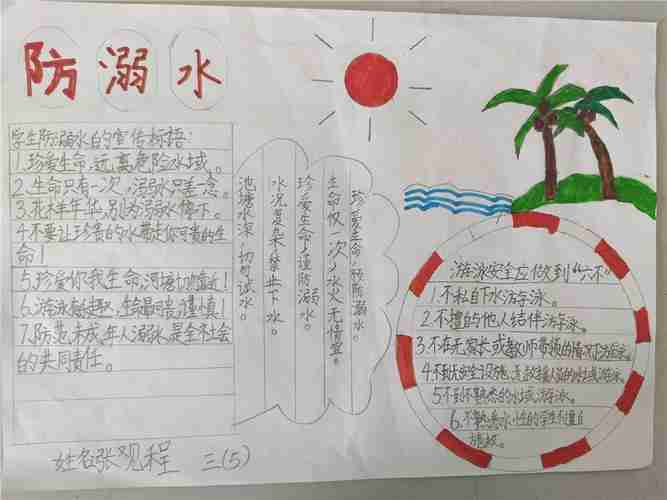 防溺水
学生防溺水的宣传标语:
1.珍爱生命,远离危险水域。
2.生命只有一次,溺水只差一念。
3.花样年华,别为溺水停下。
4不要让珍贵的水带走你可贵的生
命!
5.珍爱你我生命,河塘切勿靠近!
6.游泳
生命最可贵,谨慎!
7.防范未成年人溺水,是全社会
的共同责任。
珍爱生命,预防溺水。
生命仅一次,水火无情
珍爱生命,谨防溺水。
水况复杂,禁止下水。
池塘水深,切勿试水。
游泳安全应做到“六不”
1.不私自下水游泳。
2.不擅自与他人结伴游泳。
3.不在无家长或教师带领的情况下游泳。
4.不到无安全设施、无救援人员的水域游泳。
5不到不熟悉的水域游泳。
6.不熟悉水性的学生不擅自
施救。
姓名张观程 三(5)